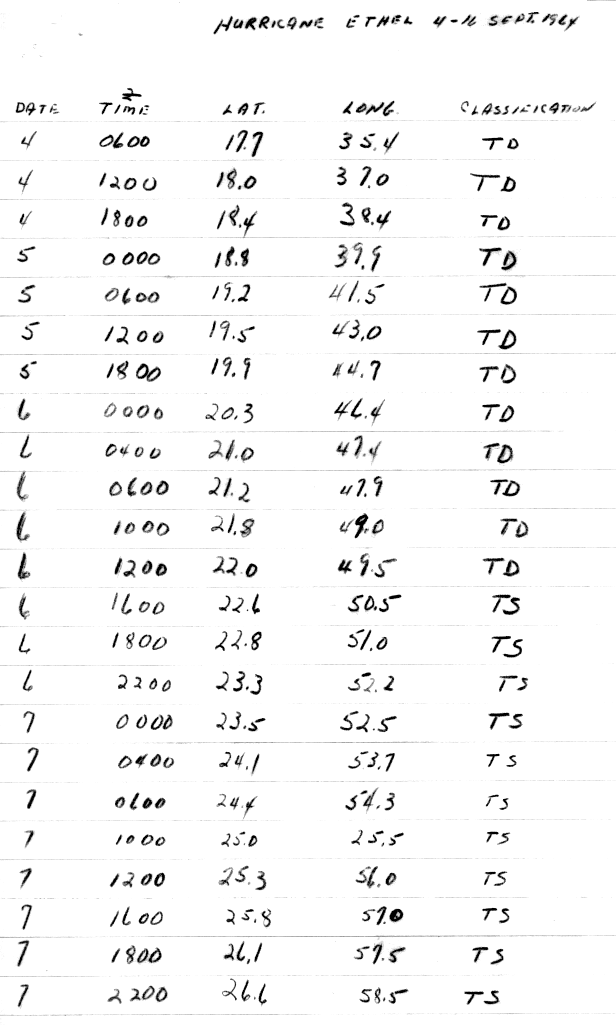 HURRICANE ETHEL 4-16 SEPT. 1964
Z
DATE TIME LAT. LONG. CLASSIFICATION
4 0600 17.7 35.4 TD
4 1200 18.0 37.0 TD
4 1800 18.4 38.4 TD
5 0000 18.8 39.9 TD
5 0600 19.2 41.5 TD
5 1200 19.5 43.0 TD
5 1800 19.9 44.7 TD
6 0000 20.3 46.4 TD
6 0400 21.0 47.4 TD
6 0600 21.2 47.9 TD
6 1000 21.8 49.0 TD
6 1200 22.0 49.5 TD
6 1600 22.6 50.5 TS
6 1800 22.8 51.0 TS
6 2200 23.3 52.2 TS
7 0000 23.5 52.5 TS
7 0400 24.1 53.7 TS
7 0600 24.4 54.3 TS
7 1000 25.0 25.5 TS
7 1200 25.3 56.0 TS
7 1600 25.8 57.0 TS
7 1800 26.1 57.5 TS
7 2200 26.6 58.5 TS